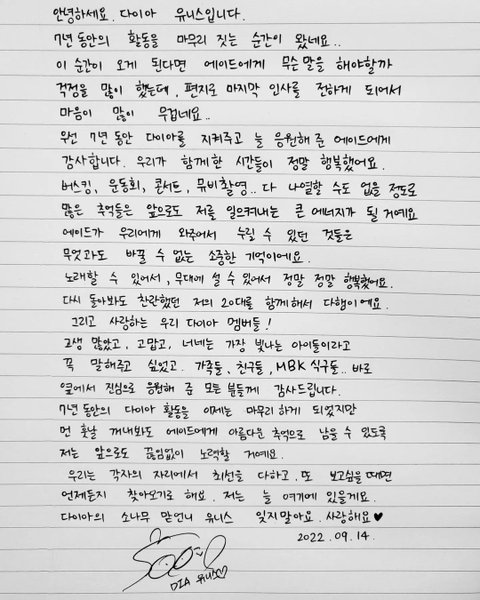 안녕하세요. 다이아 유니스입니다.
7년 동안의 활동을 마무리 짓는 순간이 왔네요..
이 순간이 오게 된다면 에이드에게 무슨 말을 해야할까
걱정을 많이 했는데, 편지로 마지막 인사를 전하게 되어서
마음이 많이 무겁네요..
우선 7년 동안 다이아를 지켜주고 늘 응원해 준 에이드에게
감사합니다. 우리가 함께 한 시간들이 정말 행복했어요.
버스킹, 운동회, 콘서트, 뮤비촬영.. 다 나열할 수도 없을 정도로
많은 추억들은 앞으로도 저를 일으켜내는 큰 에너지가 될 거예요
에이드가 우리에게 와주어서 누릴 수 있던 것들은
무엇과도 바꿀 수 없는 소중한 기억이에요.
노래할 수 있어서, 무대에 설 수 있어서 정말 정말 행복했어요.
다시 돌아봐도 찬란했던 저의 20대를 함께해서 다행이에요.
그리고 사랑하는 우리 다이아 멤버들!
고생 많았고, 고맙고, 너네는 가장 빛나는 아이들이라고
꼭 말해주고 싶었고. 가족들, 친구들, MBK 식구들.. 바로
옆에서 진심으로 응원해 준 모든 분들께 감사드립니다.
7년 동안의 다이아 활동을 이제는 마무리하게 되었지만
먼 훗날 꺼내봐도 에이드에게 아름다운 추억으로 남을 수 있도록
저는 앞으로도 끊임없이 노력할 거예요.
우리는 각자의 자리에서 최선을 다하고, 또 보고싶을 때면
언제든지 찾아오기로 해요. 저는 늘 여기에 있을게요.
다이아의 소나무 맏언니 유니스 잊지말아요. 사랑해요♥
2022. 09. 14.
DIA 유니스♡